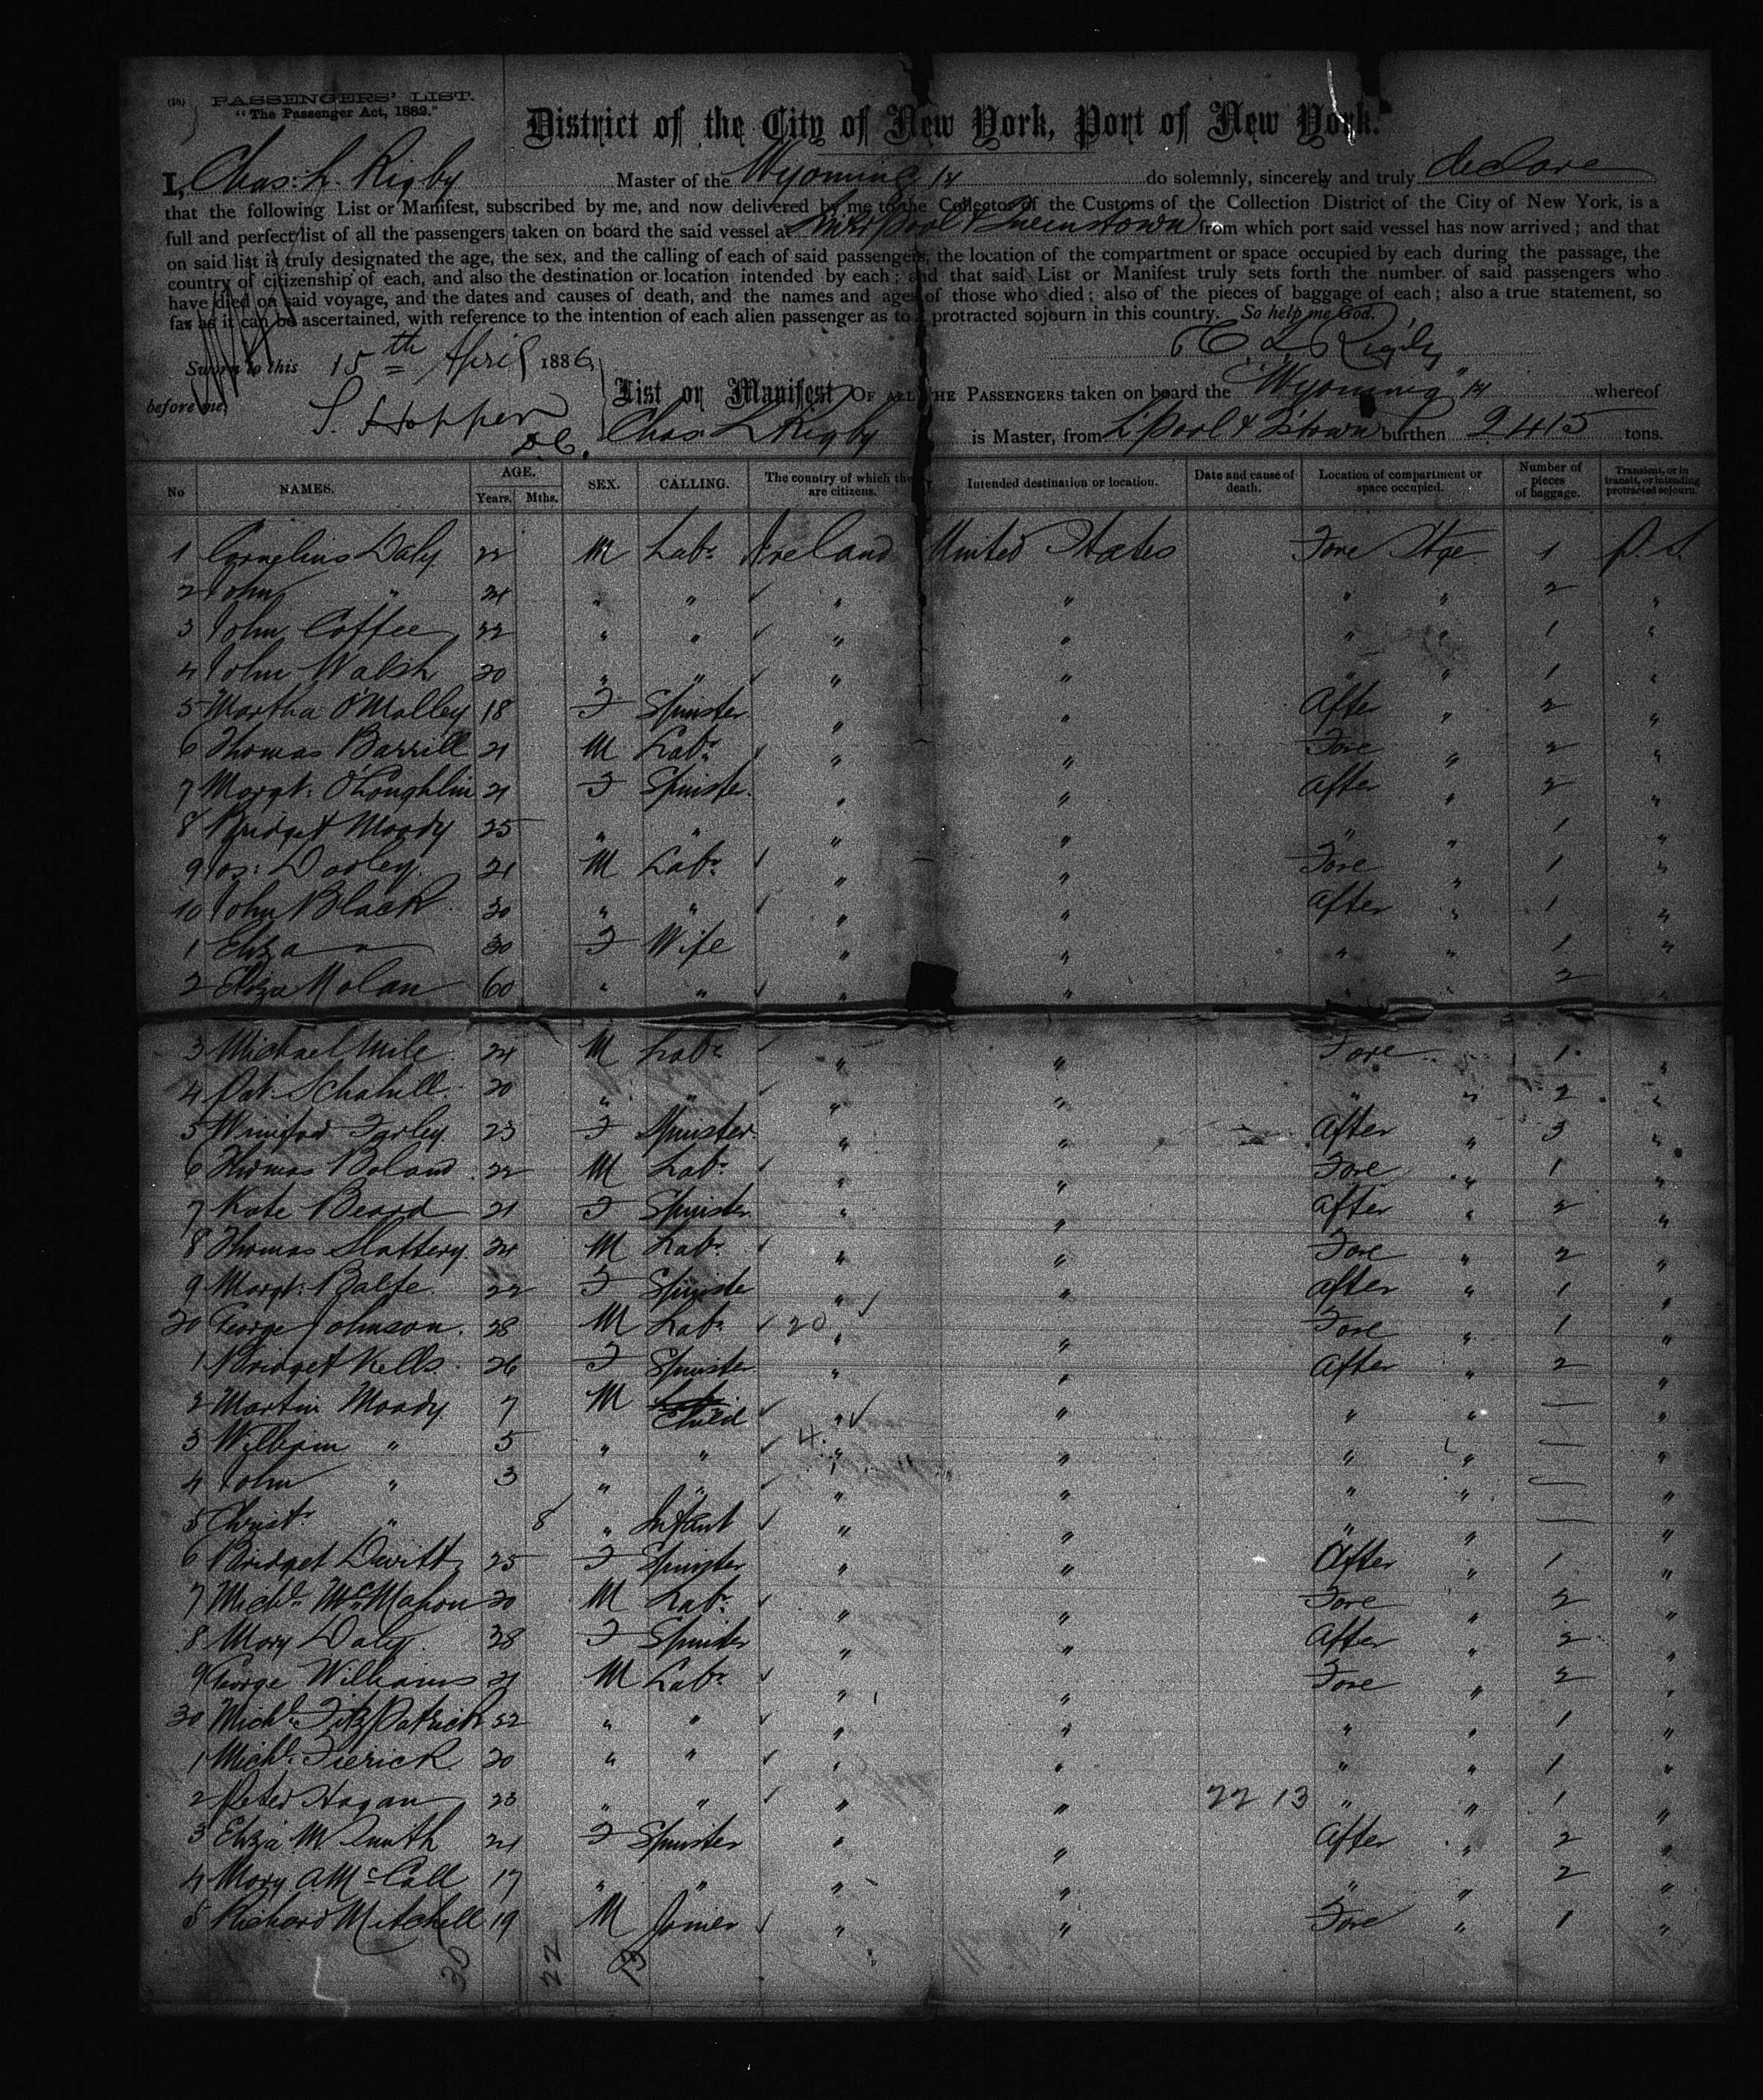 (18) PASSENGERS' LIST.
"The Passenger Act, 1882."
District of the City of New York, Port of New York.
I, Chas: L. Rigby Master of the Wyoming 14 do solemnly, sincerely and truly declare
that the following List or Manifest, subscribed by me, and now delivered by me to the Collector of the Customs of the Collection District of the City of New York, is a
full and perfect list of all the passengers taken on board the said vessel at Liverpool & Queenstown from which port said vessel has now arrived; and that
on said list is truly designated the age, the sex, and the calling of each of said passengers, the location of the compartment or space occupied by each during the passage, the
country of citizenship of each, and also the destination or location intended by each; and that said List or Manifest truly sets forth the number of said passengers who
have died on said voyage, and the dates and causes of death, and the names and ages of those who died; also of the pieces of baggage of each; also a true statement, so
far as it can be ascertained, with reference to the intention of each alien passenger as to a protracted sojourn in this country. So help me God.
C. L. Rigby
Sworn to this 15th April 1886
before me, S. Hopper D.C.
List or Manifest OF ALL THE PASSENGERS taken on board the "Wyoming" 14 whereof
Chas L Rigby is Master, from L'Pool & Q'town burthen 2415 tons.
No NAMES. AGE. Years. Mths. SEX. CALLING. The country of which they are citizens. Intended destination or location. Date and cause of death. Location of compartment or space occupied. Number of pieces of baggage. Transient, or in transit, or intending protracted sojourn.
1 Cornelius Daly 22 M Labr Ireland United States Fore Stge 1 P.S.
2 John " 24 " " " " " " 2 "
3 John Coffee 22 " " " " " " 1 "
4 John Walsh 20 " " " " " " 1 "
5 Martha O'Malley 18 F Spinster " " After " 2 "
6 Thomas Barrill 21 M Labr " " Fore " 2 "
7 Margt: O'Loughlin 21 F Spinster " " After " 2 "
8 Bridget Moody 25 " " " " " " 1 "
9 Jos: Dooley 21 M Labr " " Fore " 1 "
10 John Black 30 " " " " After " 1 "
1 Eliza " 30 F Wife " " " " 1 "
2 Eliza Nolan 60 " " " " " " 2 "
3 Michael Mile 24 M Labr " " Fore " 1 "
4 Pat: Schahill 20 " " " " " " 2 "
5 Winifad Farley 23 F Spinster " " After " 3 "
6 Thomas Boland 22 M Labr " " Fore " 1 "
7 Kate Beard 21 F Spinster " " After " 2 "
8 Thomas Slattery 24 M Labr " " Fore " 2 "
9 Margt: Balfe 22 F Spinster " " After " 1 "
20 George Johnson 28 M Labr 20 " " Fore " 1 "
1 Bridget Kells 26 F Spinster " " After " 2 "
2 Martin Moody 7 M Child " " " " — "
3 William " 5 " " 4 " " " " — "
4 John " 3 " " " " " " — "
5 Christ: " 8 " Infant " " " " — "
6 Bridget Dewitt 25 F Spinster " " After " 1 "
7 Michl: McMahon 20 M Labr " " Fore " 2 "
8 Mary Daley 38 F Spinster " " After " 2 "
9 George Williams 21 M Labr " " Fore " 2 "
30 Michl: FitzPatrick 22 " " " " " " 1 "
1 Michl: Fierick 20 " " " " " " 1 "
2 Peter Hogan 23 " " " " 22 13 " " 1 "
3 Eliza M Smith 21 F Spinster " " After " 2 "
4 Mary A. McCall 17 " " " " " " 2 "
5 Richard Mitchell 19 M Joiner " " Fore " 1 "
30 22 13